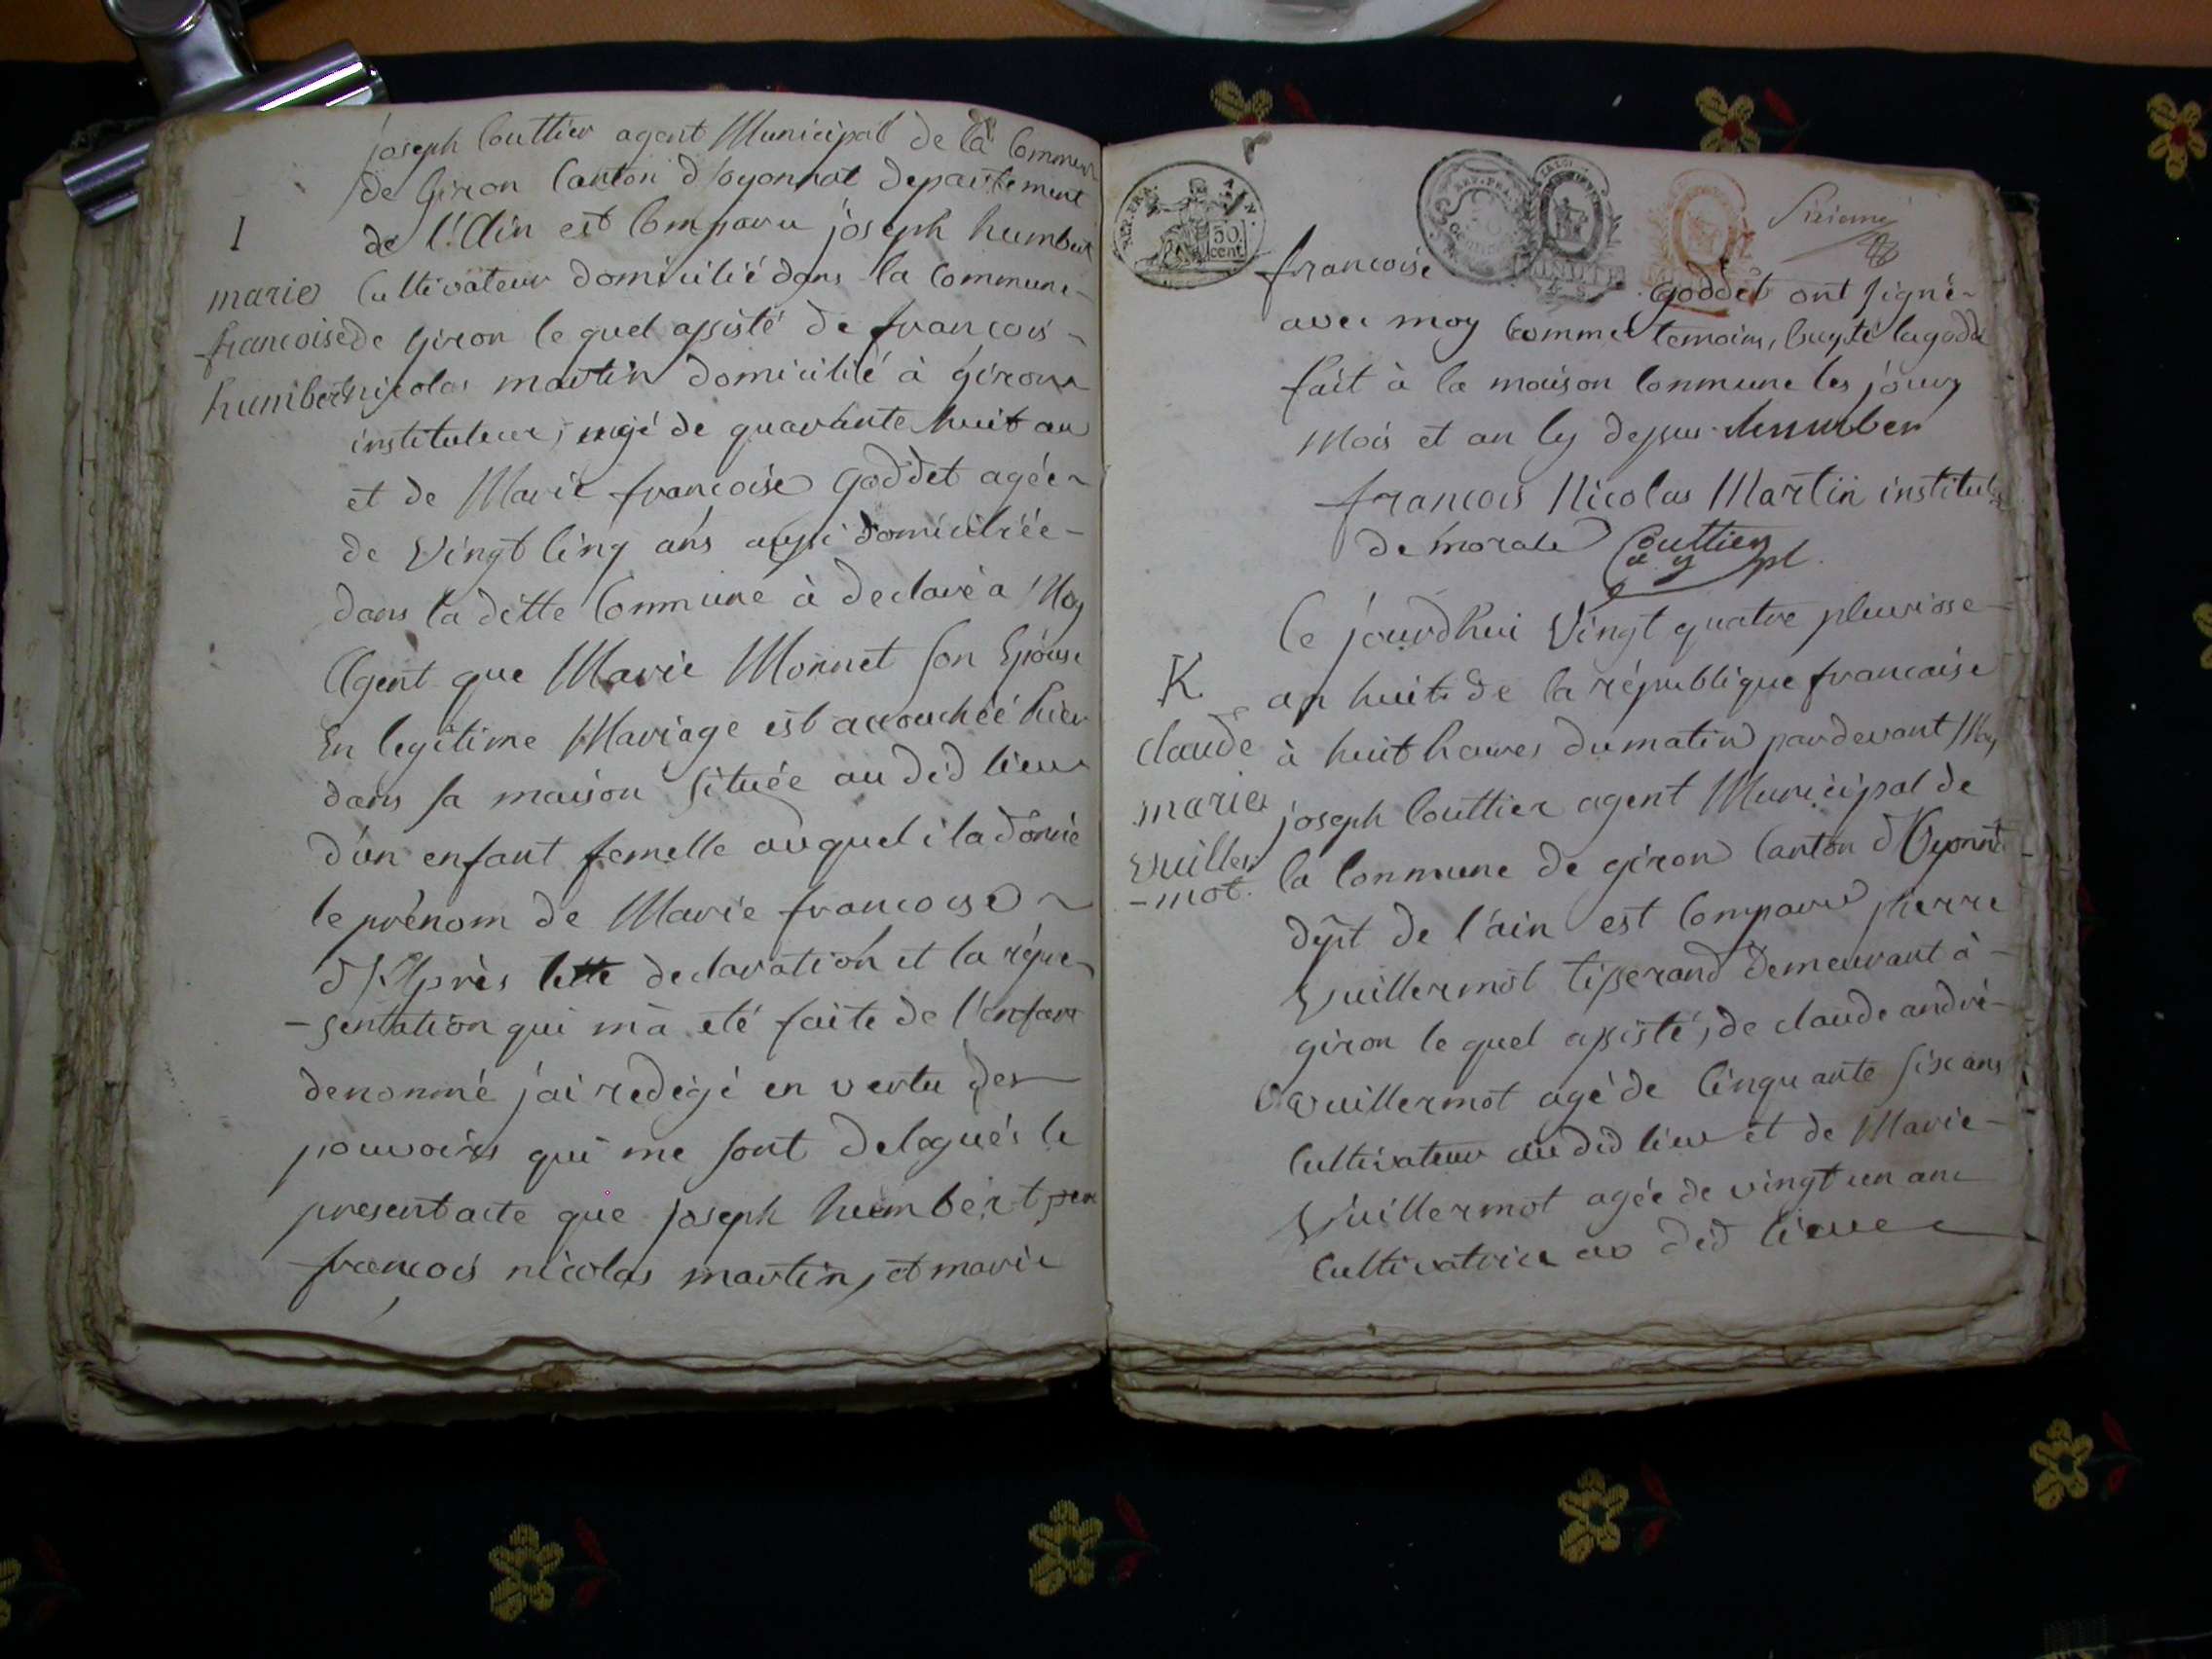 joseph Couttier agent Municipal de la Commune
de Giron Canton d'oyonnat departement
de l'Ain est Comparu joseph humbert
I
marie
francoise
humbert
Cultivateur domicilié dans la Commune
de giron le quel assisté de francois
nicolas martin domicilié à giron
instituteur, agé de quarante huit an
et de Marie francoise goddet agée
de vingt cinq ans aussi domicilrée
dans la ditte Commune à declaré a Moy
Agent que Marie Monnet son Epouse
En legitime Mariage est accouchée hier
dans sa maison située au did lieu
d'un enfant femelle auquel il a donné
le prénom de Marie francoise
d'Après cette declaration et la répre
-sentation qui m'a eté faite de l'enfant
denommé j'ai redigé en vertu des
pouvoirs qui me sont delegués le
present acte que joseph humbert pere
francois nicolas martin, et marie
REP. FRA. AIN.
50 cent
REP. FRA.
francoise goddet ont signé
avec moy comme temoins, excepté la godde
fait à la maison Commune les jour
Mois et an Cy dessus humber
francois Nicolas Martin institut
de morale Couttier
Ce jourdhui Vingt quatre pluviose
K.
claude
marie
vuiller
-mot.
an huit de la république francaise
à huit heures du matin pardevant Moy
joseph Couttier agent Municipal de
la Commune de giron Canton d'Oyonnat
dept de l'ain est Comparu pierre
Vuillermot tisserand demeurant à
giron le quel assisté, de claude andré
vuillermot agé de Cinquante six ans
Cultivateur au did lieu et de Marie
Vuillermot agée de vingt un ans
Cultivatrice au did lieu